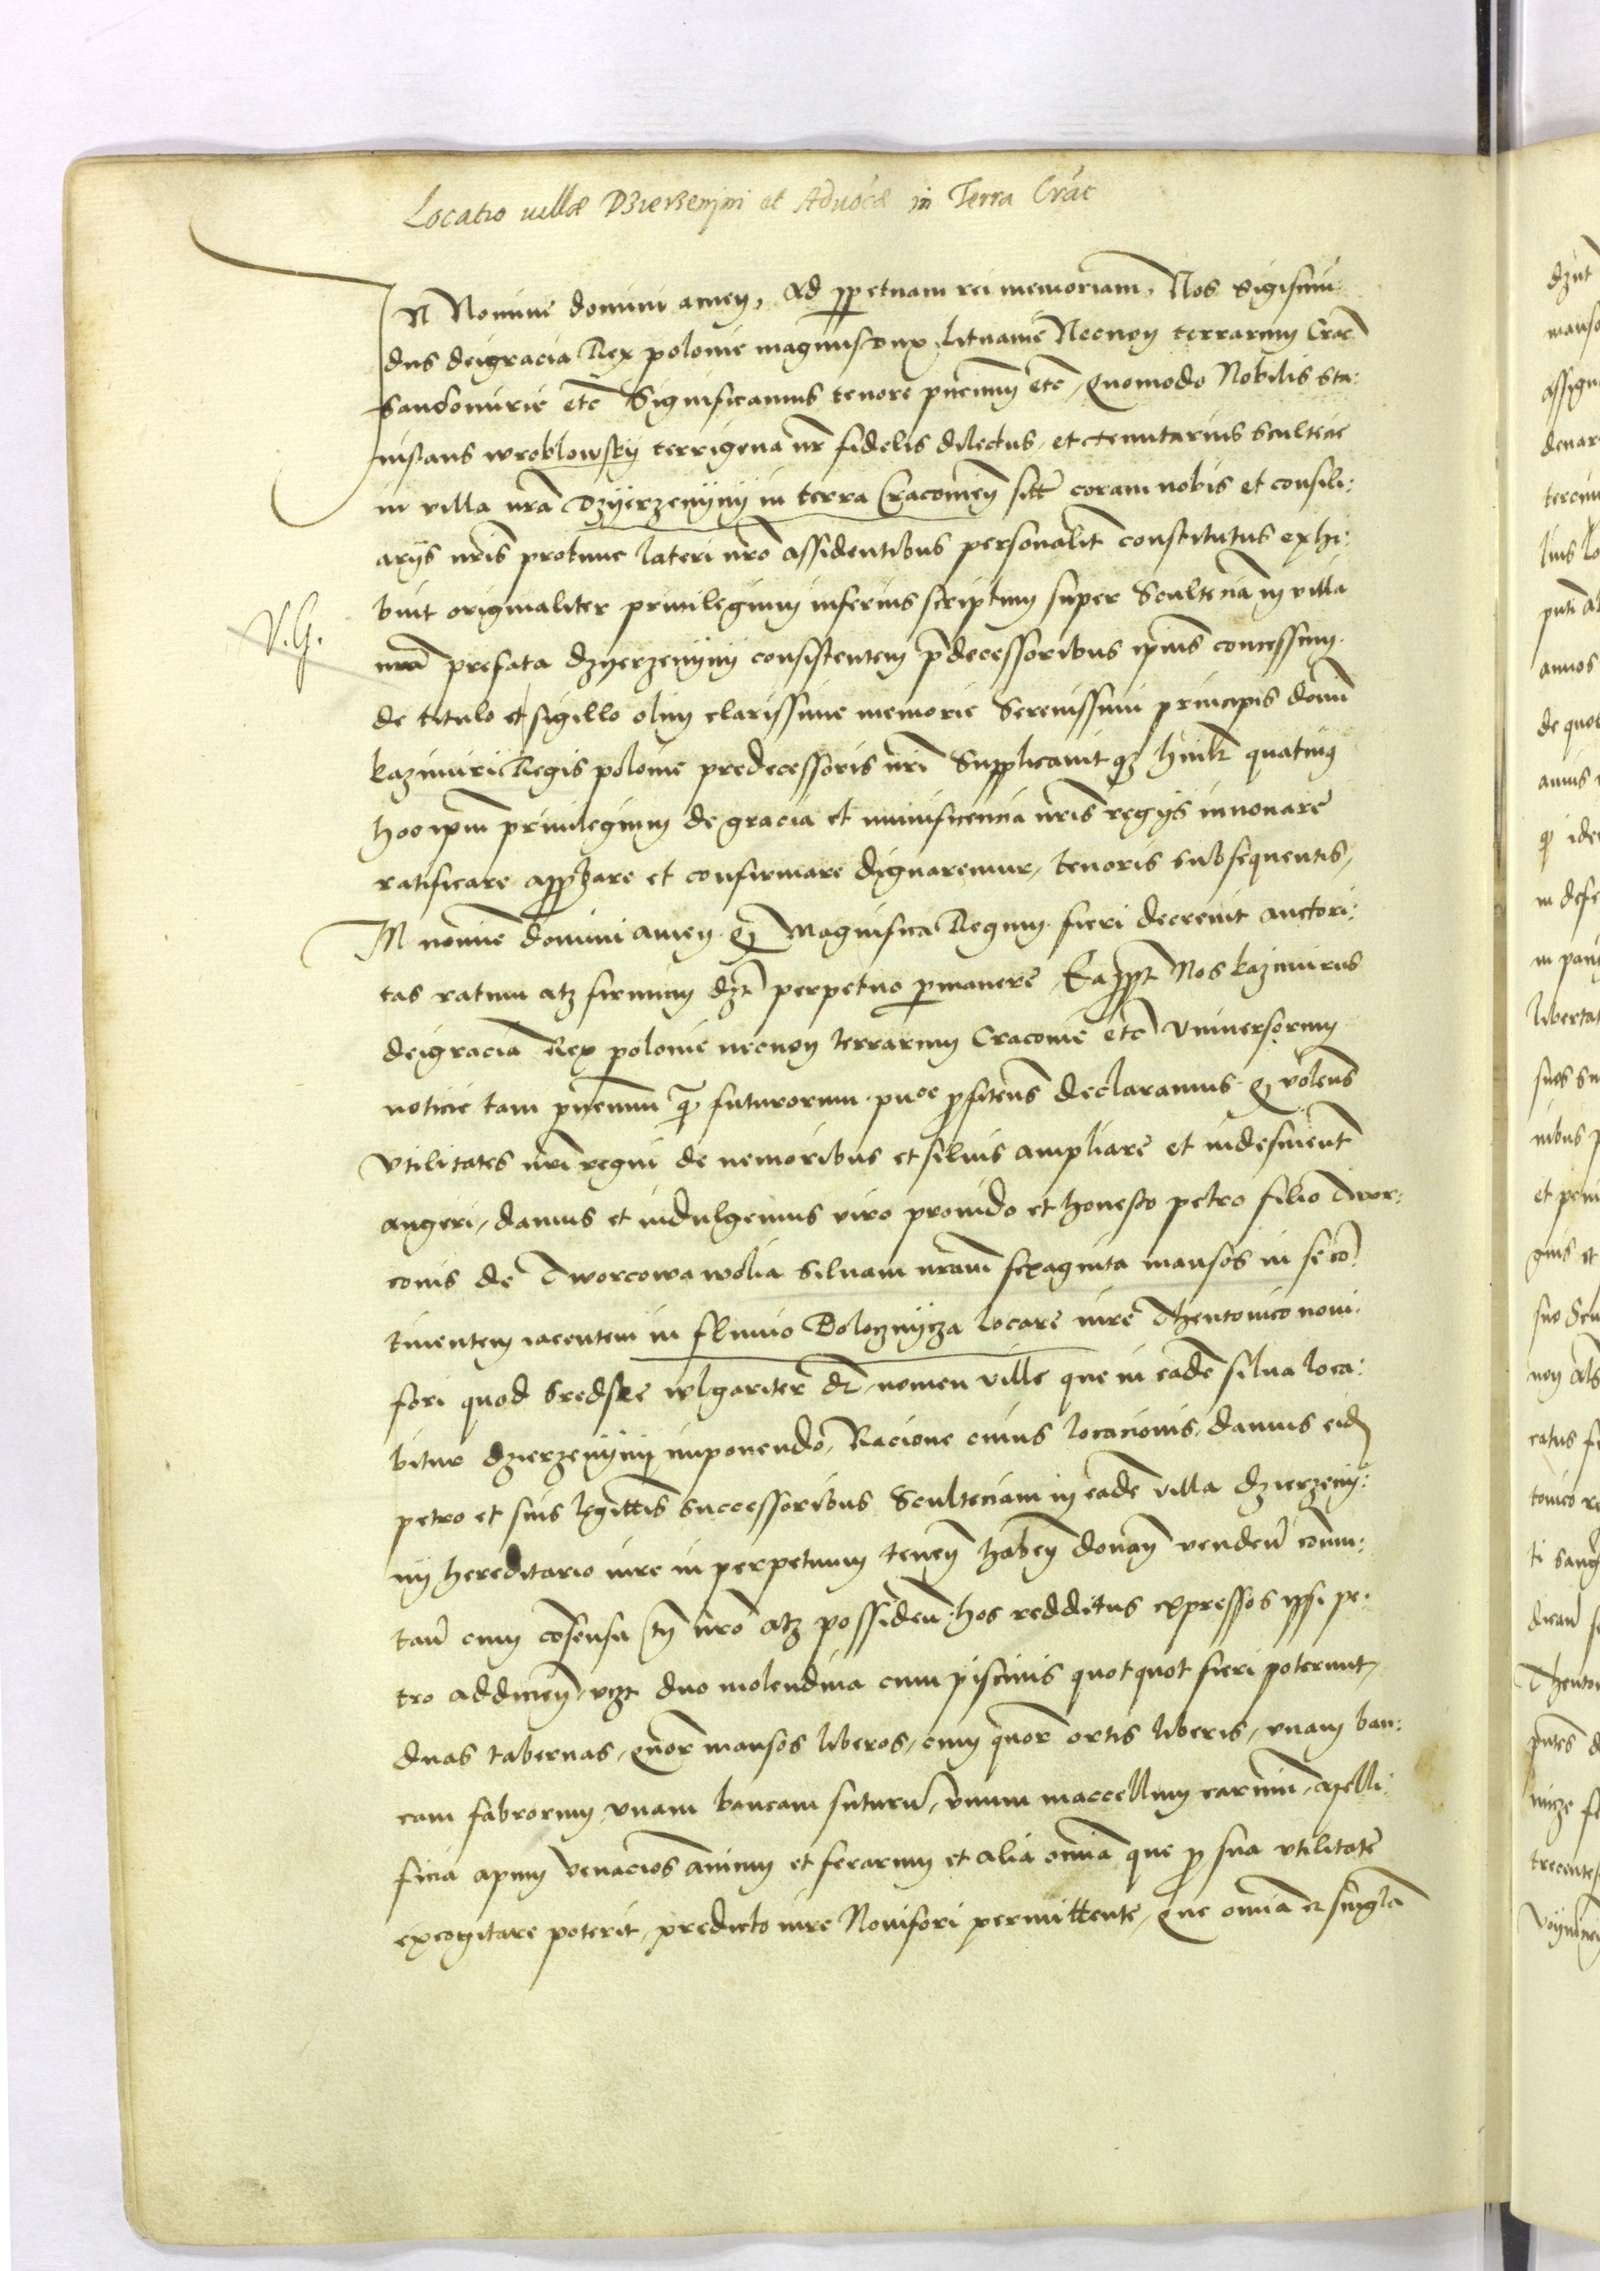 Locatio villæ Dzierzenini et Advocæ in Terra Crac
In Nomine domini amen, Ad ppetuam rei memoriam, Nos Sigismu:
dus deigracia Rex polonie magnusdux Lituanie Necnon terrarum Crac
Sandomirie etc Significamus tenore pncium etc, Quomodo Nobilis Sta:
nislaus wroblowsky terrigena nr fidelis dilectus, et tenutarius Sculteciae
in villa nra Dzyerzenyny in terra Cracouien sitte coram nobis et consili:
arijs nris protunc lateri nro assidentibus personalit constitutus exhi:
V.G.
buit originaliter priuilegium inferius scriptum super Scultecia in villa
nra prefata dzyerzenyny consistentem pdecessoribus ipius concessum
de titulo et sigillo olim clarissime memorie Serenissimi principis domi
kazimiri Regis polonie predecessoris nri Supplicauit qz humilr quatinus
hoc ipm priuilegium de gracia et munificencia nris regijs innouare
ratificare approbare et confirmare dignaremur, tenoris subsequentis,
In nomine domini amen. Q Magnifica Regum fieri decreuit auctori:
tas ratum atz firmum dzt perpetuo pmanere, Eappt Nos kazimirus
deigracia Rex polonie necnon terrarum Cracouie etc Vniuersorum
noticie tam pncium q futurorum puoc pfitens declaramus. Q volens
vtilitates nri regni de nemoribus et siluis ampliare et indesinent
augeri, damus et indulgemus viro prouido et honesto petro filio Dwor:
conis de Dworcowa wolia Siluam nram sexaginta mansos in se co:
tinentem iacentem in fluuio Dolocznycza locare iure Theutonico noui:
fori quod Sredske wlgariter dr, nomen ville que in eade silua loca:
bitur dzierzenyny imponendo, Racione cuius locacionis, damus eid
petro et suis legittis successoribus Sculteciam in eade villa dzierzeny:
ny hereditario iure in perpetuum tenen haben donan venden comu:
tan cum cosensu tn nro atz possiden. hos redditus expressos ipsi pe:
tro addicien, vczt duo molendina cum piscinis quotquot fieri poterunt,
duas tabernas, quor mansos liberos, cum quor ortis liberis, vnam ban:
cam fabrorum vnam bancam suturu, vnum maccellum carniu, melli:
ficia apum venacios animu et ferarum et alia omia que p sua vtilitate
excogitare poterit, predicto iure Nouifori permittente, Que omia et singla